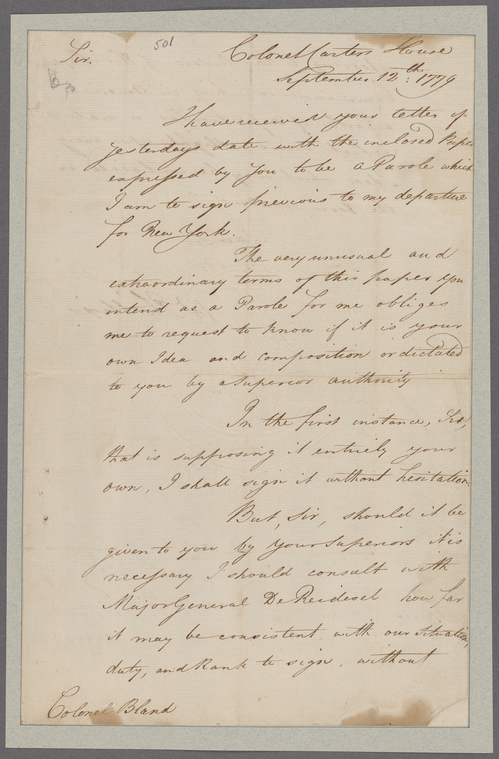 501
Sir.
Colonel Carters House
September 12th: 1779
I have received your letter of
yesterdays date with the inclosed Paper
expressed by you to be a Parole which
I am to sign previous to my departure
for New York.
The very unusual and
extraordinary terms of this paper you
intend as a Parole for me obliges
me to request to know if it is your
own Idea and composition or dictated
to you by a superior authority
In the first instance, Sir,
that is supposing it entirely your
own, I shall sign it without hesitation
But, Sir, should it be
given to you by your superiors it is
necessary I should consult with
Major General De Reidesel how far
it may be consistent with our Situation,
duty, and Rank to sign, without
Colonel Bland